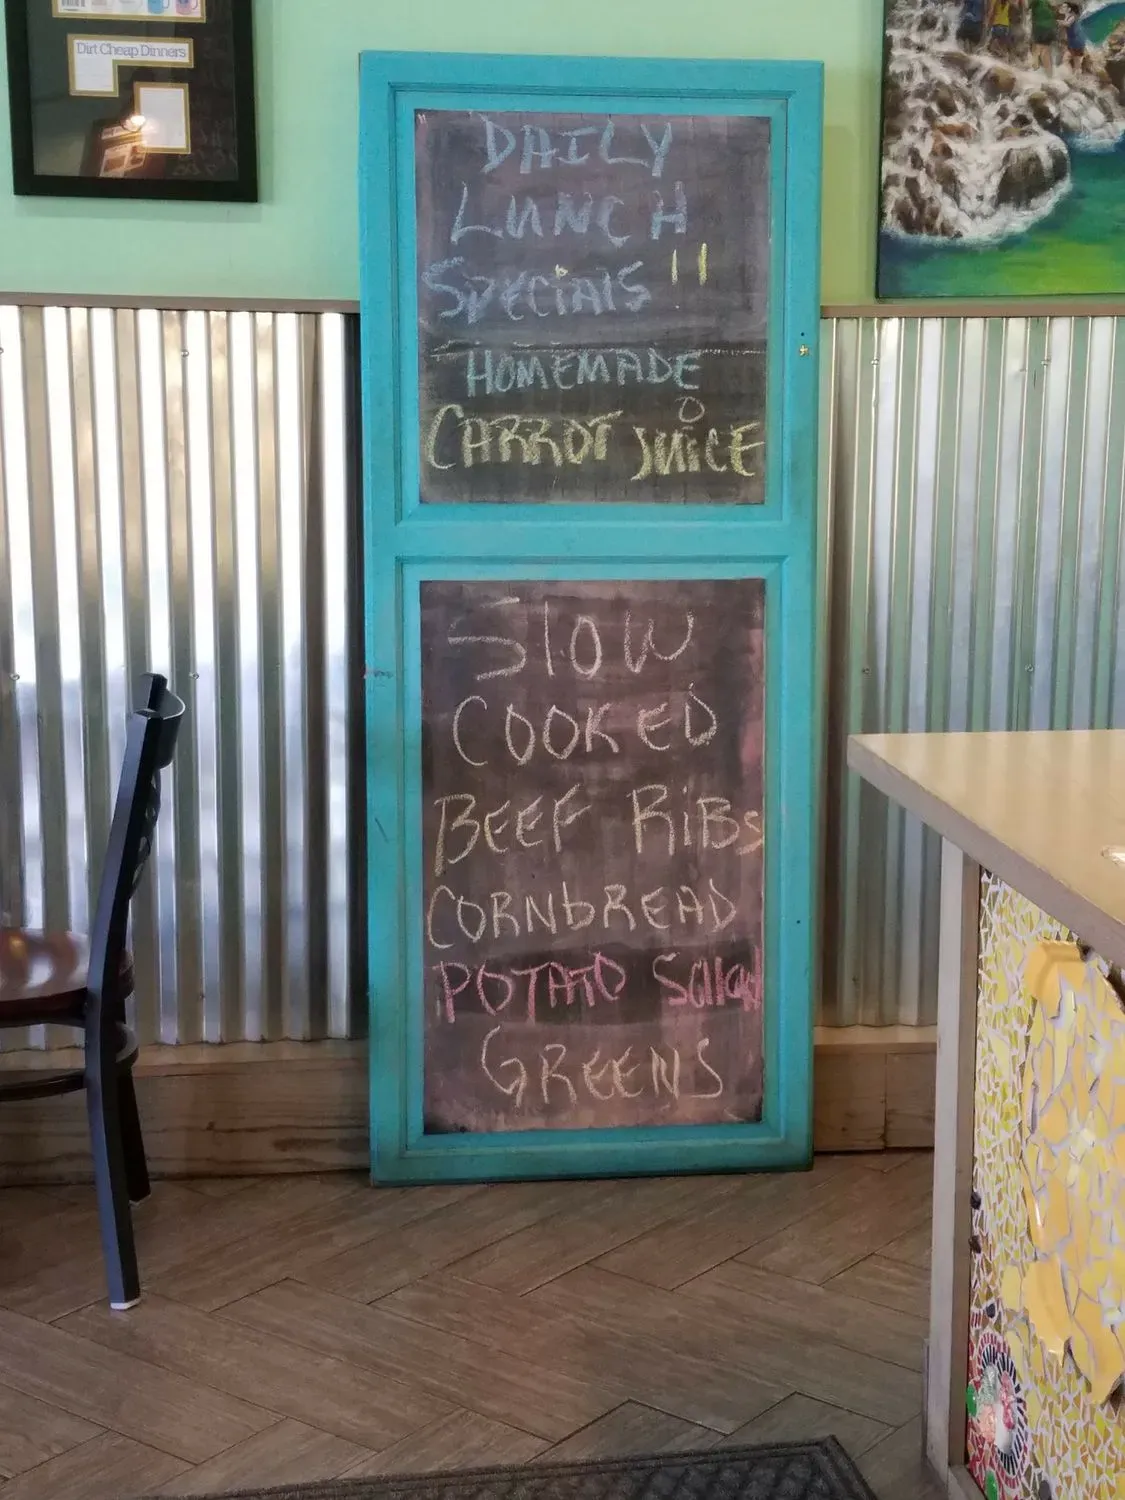 Dirt Cheap Dinners
DAILY
LUNCH
SPECiAlS !!
HOMEMADE
CARROT JUICE
Slow
COOKED
BEEF RiBs
CORNbREAD
POTATO Salad
GREENS